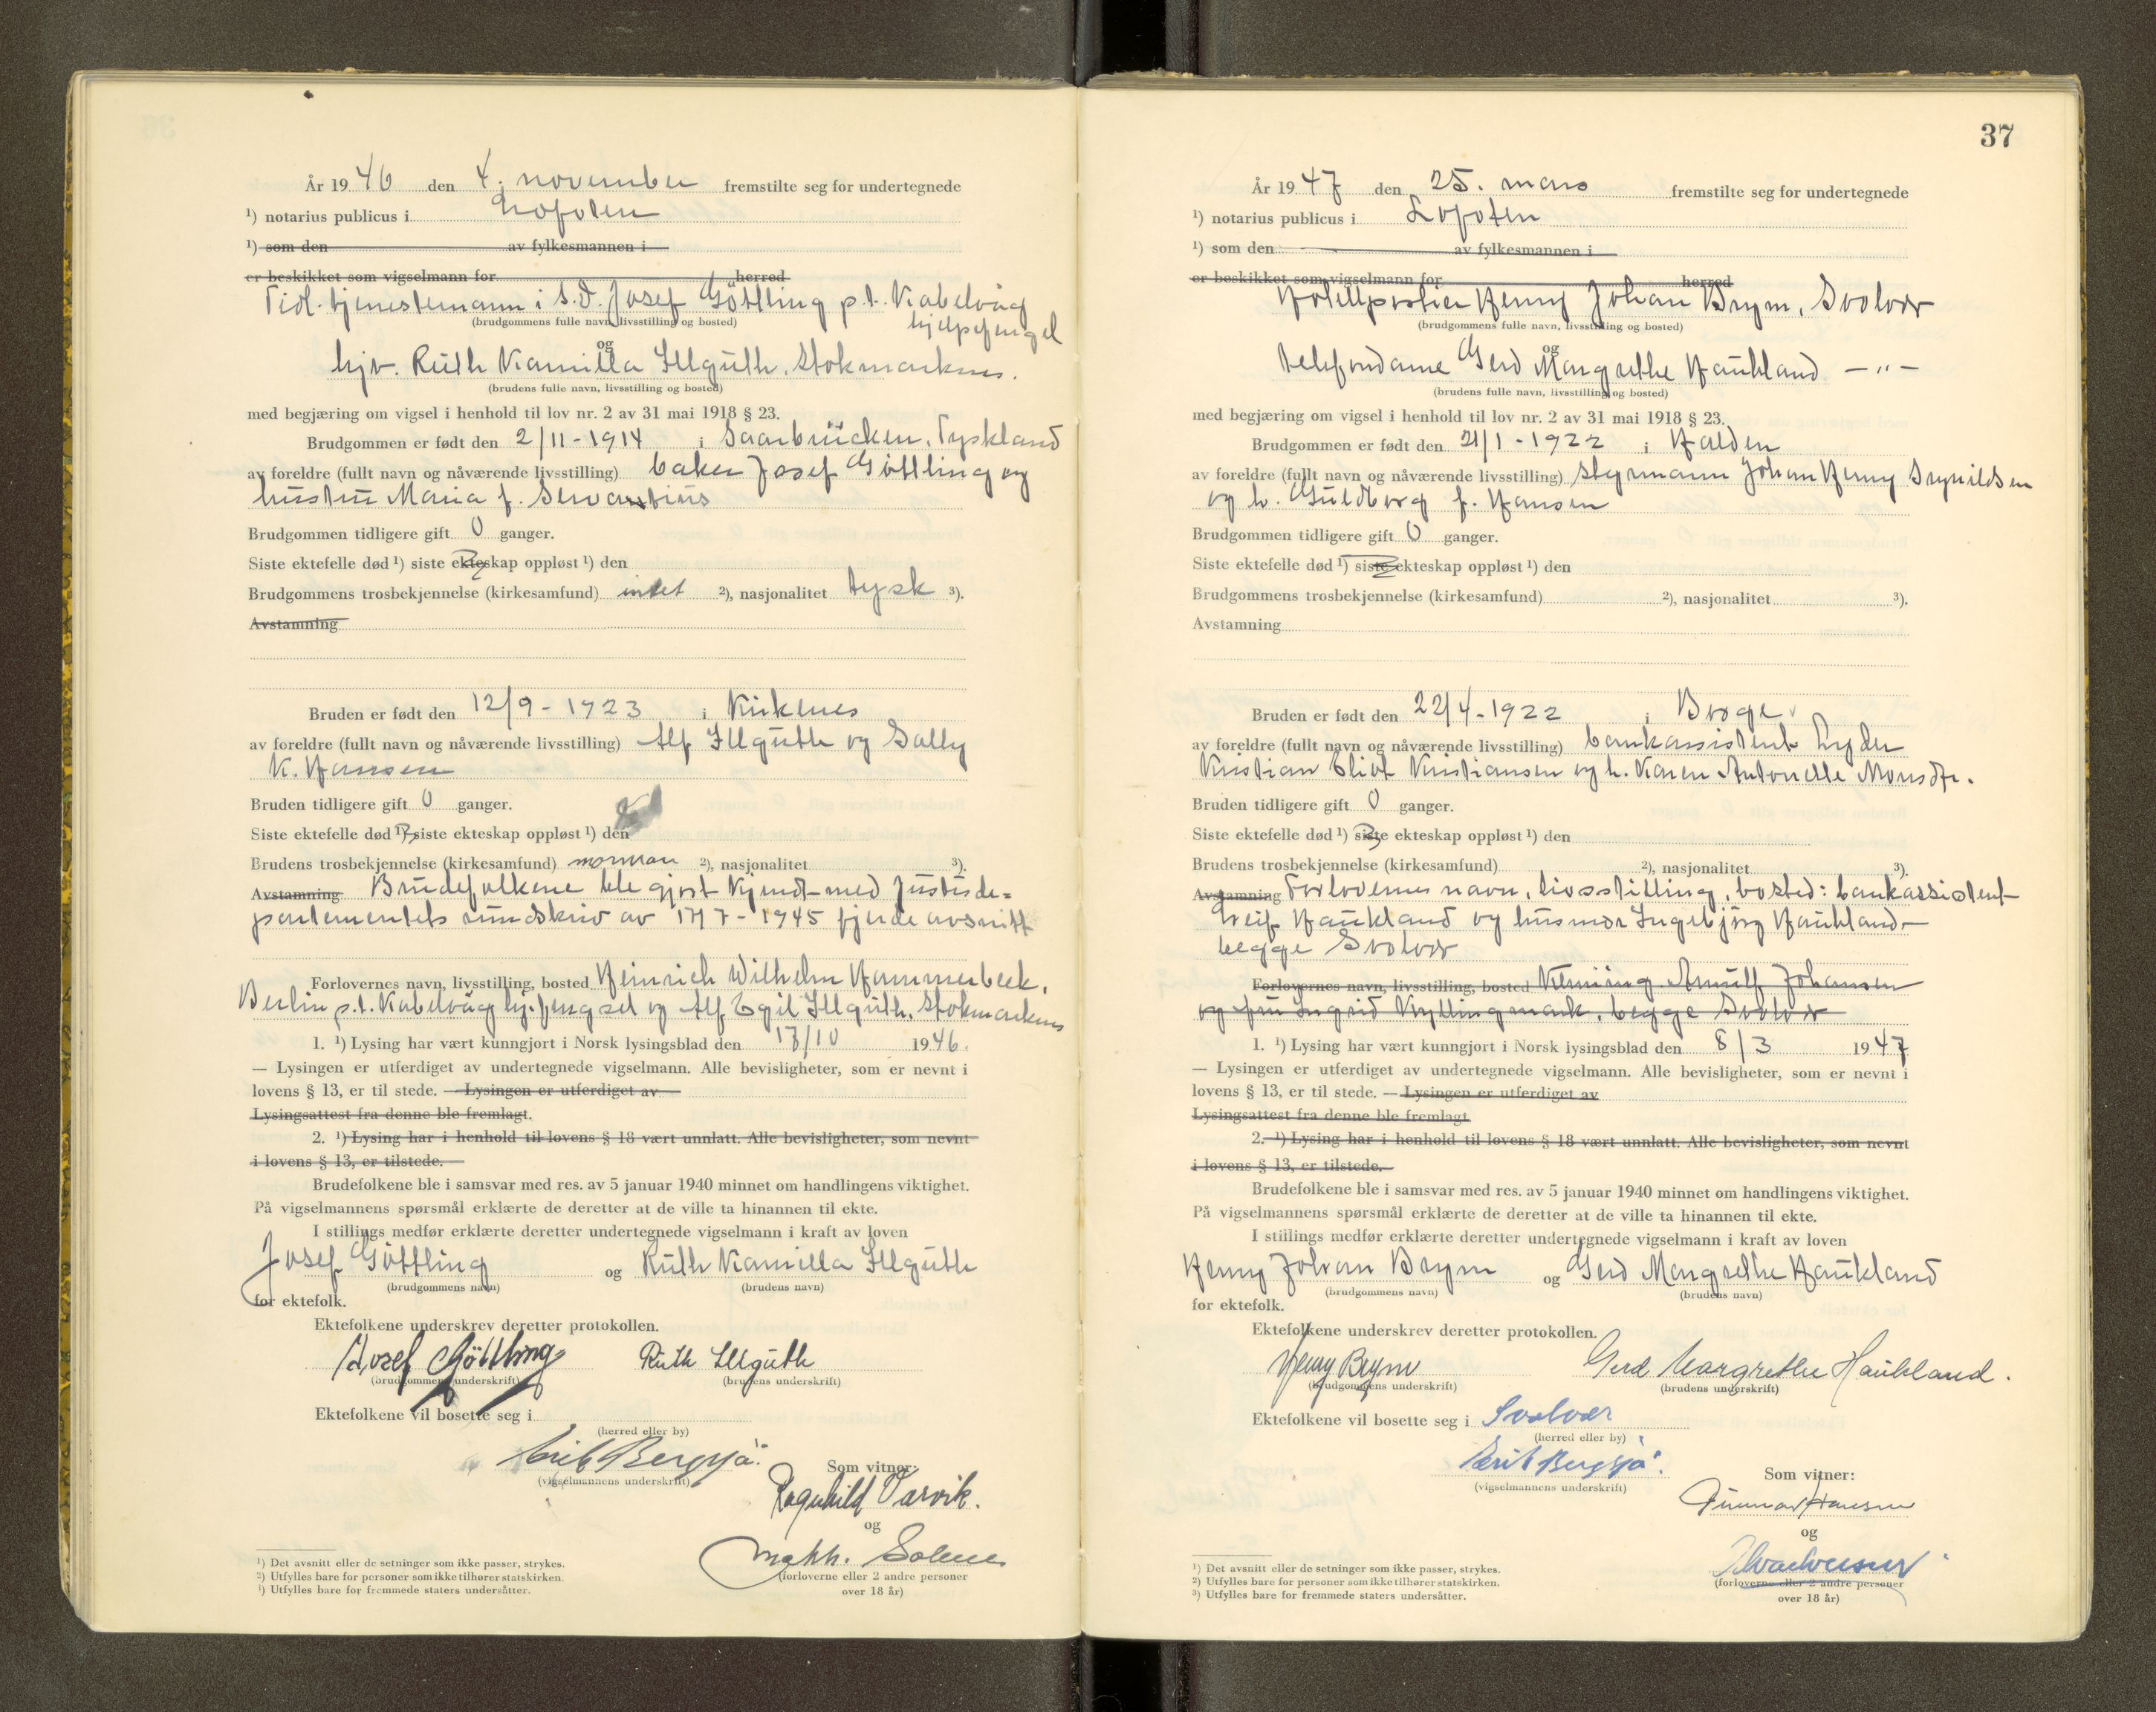 År 1946 den 4. november fremstilte seg for undertegnede
¹) notarius publicus i Lofoten
¹) som den av fylkesmannen i
er beskikket som vigselmann for herred
Tidl. tjenestemann i S.D. Josef Göttling p.t. Kabelvåg
hjelpefengsel
(brudgommens fulle navn, livsstilling og bosted)
og
hjv. Ruth Kamilla Illguth, Stokmarknes.
(brudens fulle navn, livsstilling og bosted)
med begjæring om vigsel i henhold til lov nr. 2 av 31 mai 1918 § 23.
Brudgommen er født den 2/11-1914 i Saarbrücken, Tyskland
av foreldre (fullt navn og nåværende livsstilling) baker Josef Göttling og
hustru Maria f. Servantius
Brudgommen tidligere gift 0 ganger.
Siste ektefelle død ¹) siste ekteskap oppløst ¹) den
Brudgommens trosbekjennelse (kirkesamfund) intet ²), nasjonalitet tysk ³).
Avstamning
Bruden er født den 12/9-1923 i Kirkenes
av foreldre (fullt navn og nåværende livsstilling) Alf Illguth og Sally
K. Hansen
Bruden tidligere gift 0 ganger.
Siste ektefelle død ¹) siste ekteskap oppløst ¹) den
Brudens trosbekjennelse (kirkesamfund) mormon ²), nasjonalitet ³).
Avstamning Brudefolkene ble gjort kjendt med Justisde=
partementets rundskriv av 17/7-1945 fjerde avsnitt
Forlovernes navn, livsstilling, bosted Heinrich Wilhelm Hammerbeck,
Berlin p.t. Kabelvåg hj.fengsel og Alf Egil Illguth, Stokmarknes
1. ¹) Lysing har vært kunngjort i Norsk lysingsblad den 17/10 1946.
— Lysingen er utferdiget av undertegnede vigselmann. Alle bevisligheter, som er nevnt i
lovens § 13, er til stede. — Lysingen er utferdiget av
Lysingsattest fra denne ble fremlagt.
2. ¹) Lysing har i henhold til lovens § 18 vært unnlatt. Alle bevisligheter, som nevnt
i lovens § 13, er tilstede.
Brudefolkene ble i samsvar med res. av 5 januar 1940 minnet om handlingens viktighet.
På vigselmannens spørsmål erklærte de deretter at de ville ta hinannen til ekte.
I stillings medfør erklærte deretter undertegnede vigselmann i kraft av loven
Josef Göttling og Ruth Kamilla Illguth
(brudgommens navn) (brudens navn)
for ektefolk.
Ektefolkene underskrev deretter protokollen.
Josef Göttling Ruth Illguth
(brudgommens underskrift) (brudens underskrift)
Ektefolkene vil bosette seg i
(herred eller by)
Erik Bergsjø.
(vigselmannens underskrift)
Som vitner:
Ragnhild Varvik.
og
Solem
(forloverne eller 2 andre personer
over 18 år)
¹) Det avsnitt eller de setninger som ikke passer, strykes.
²) Utfylles bare for personer som ikke tilhører statskirken.
³) Utfylles bare for fremmede staters undersåtter.
37
År 1947 den 25. mars fremstilte seg for undertegnede
¹) notarius publicus i Lofoten
¹) som den av fylkesmannen i
er beskikket som vigselmann for herred
Hotellportier Henry Johan Brym, Svolvær
(brudgommens fulle navn, livsstilling og bosted)
og
telefondame Gerd Margrethe Haukland —"—
(brudens fulle navn, livsstilling og bosted)
med begjæring om vigsel i henhold til lov nr. 2 av 31 mai 1918 § 23.
Brudgommen er født den 21/1-1922 i Halden
av foreldre (fullt navn og nåværende livsstilling) styrmann Johan Henry Brynildsen
og h. Guldborg f. Hansen
Brudgommen tidligere gift 0 ganger.
Siste ektefelle død ¹) siste ekteskap oppløst ¹) den
Brudgommens trosbekjennelse (kirkesamfund) ²), nasjonalitet ³).
Avstamning
Bruden er født den 22/4-1922 i Borge
av foreldre (fullt navn og nåværende livsstilling) bankassistent Lyder
Kristian Eliot Kristiansen og h. Karen Antonette Monsdtr.
Bruden tidligere gift 0 ganger.
Siste ektefelle død ¹) siste ekteskap oppløst ¹) den
Brudens trosbekjennelse (kirkesamfund) ²), nasjonalitet ³).
Avstamning Forlovernes navn, livsstilling, bosted: bankassistent
Leif Haukland og husmor Ingebjørg Haukland
begge Svolvær
Forlovernes navn, livsstilling, bosted Henning Arnulf Johansen
og fru Ingrid Kyllingmark, begge Svolvær
1. ¹) Lysing har vært kunngjort i Norsk lysingsblad den 8/3 1947
— Lysingen er utferdiget av undertegnede vigselmann. Alle bevisligheter, som er nevnt i
lovens § 13, er til stede. — Lysingen er utferdiget av
Lysingsattest fra denne ble fremlagt
2. ¹) Lysing har i henhold til lovens § 18 vært unnlatt. Alle bevisligheter, som nevnt
i lovens § 13, er tilstede.
Brudefolkene ble i samsvar med res. av 5 januar 1940 minnet om handlingens viktighet.
På vigselmannens spørsmål erklærte de deretter at de ville ta hinannen til ekte.
I stillings medfør erklærte deretter undertegnede vigselmann i kraft av loven
Henry Johan Brym og Gerd Margrethe Haukland
(brudgommens navn) (brudens navn)
for ektefolk.
Ektefolkene underskrev deretter protokollen.
Henry Brym Gerd Margrethe Haukland.
(brudgommens underskrift) (brudens underskrift)
Ektefolkene vil bosette seg i Svolvær
(herred eller by)
Erik Bergsjø.
(vigselmannens underskrift)
Som vitner:
Gunnar Hansen
og
(forloverne eller 2 andre personer
over 18 år)
¹) Det avsnitt eller de setninger som ikke passer, strykes.
²) Utfylles bare for personer som ikke tilhører statskirken.
³) Utfylles bare for fremmede staters undersåtter.